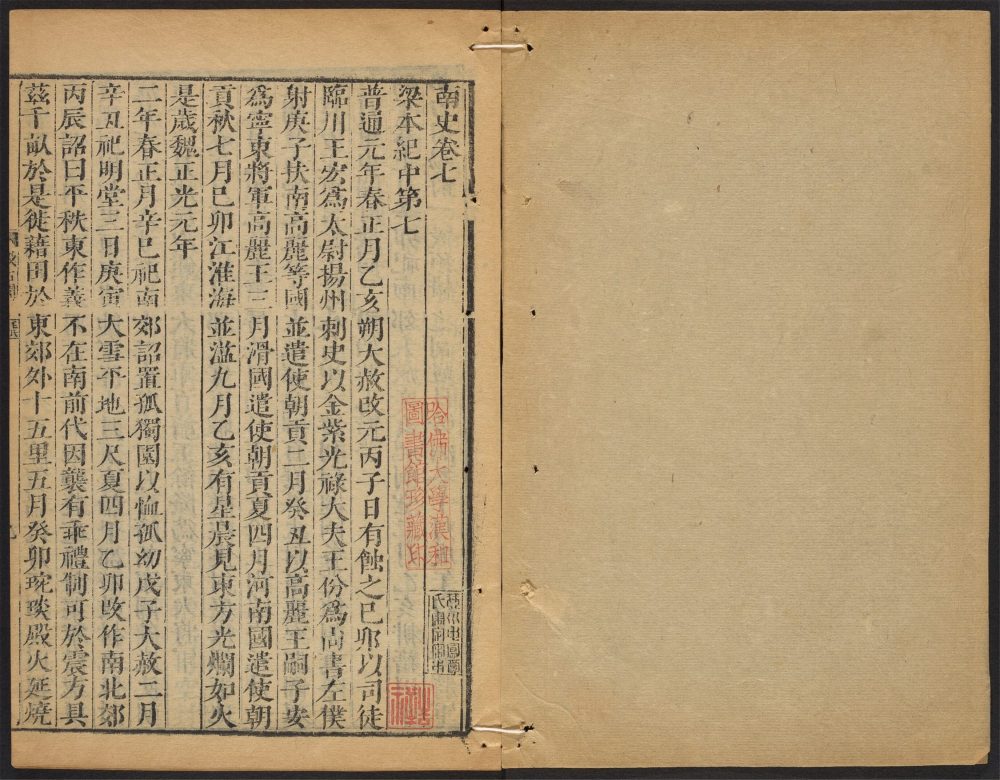 南史卷七
梁本紀中第七
普通元年春正月乙亥朔大赦改元丙子日有蝕之己卯以司徒
臨川王宏爲太尉揚州刺史以金紫光祿大夫王份爲尙書左僕
射庚子扶南高麗等國並遣使朝貢二月癸丑以高麗王嗣子安
爲寧東將軍高麗王三月滑國遣使朝貢夏四月河南國遣使朝
貢秋七月己卯江淮海並溢九月乙亥有星晨見東方光爛如火
是歲魏正光元年
二年春正月辛巳祀南郊詔置孤獨園以恤孤幼戊子大赦二月
辛丑祀明堂三日庚寅大雪平地三尺夏四月乙卯改作南北郊
丙辰詔曰平秩東作義不在南前代因襲有乖禮制可於震方具
茲千畝於是徙藉田於東郊外十五里五月癸卯琬琰殿火延燒
哈佛大學漢和
圖書館珍藏印